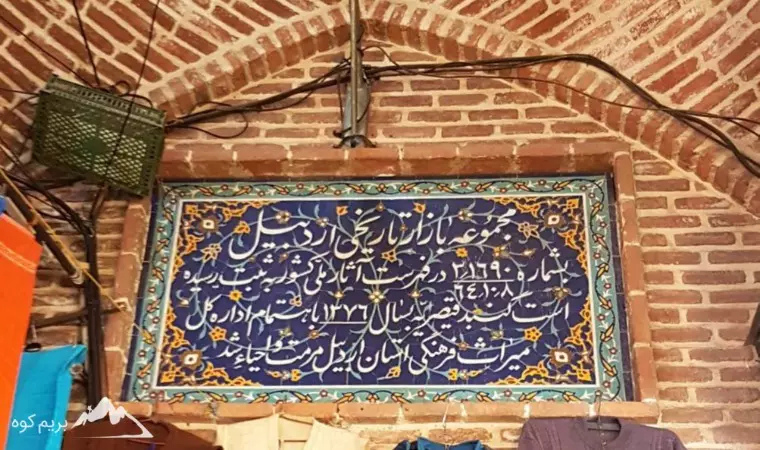 مجموعه بازار تاریخی اردبیل
بشماره ۳۱۶۹۰ در فهرست آثار ملی کشور به ثبت رسیده
۶۴٫۱۰۸
است گنبد قیصریه در سال ۱۳۷۶ با هتمام اداره کل
میراث فرهنگی استان اردبیل مرمت و احیاء شد
بریم کوه